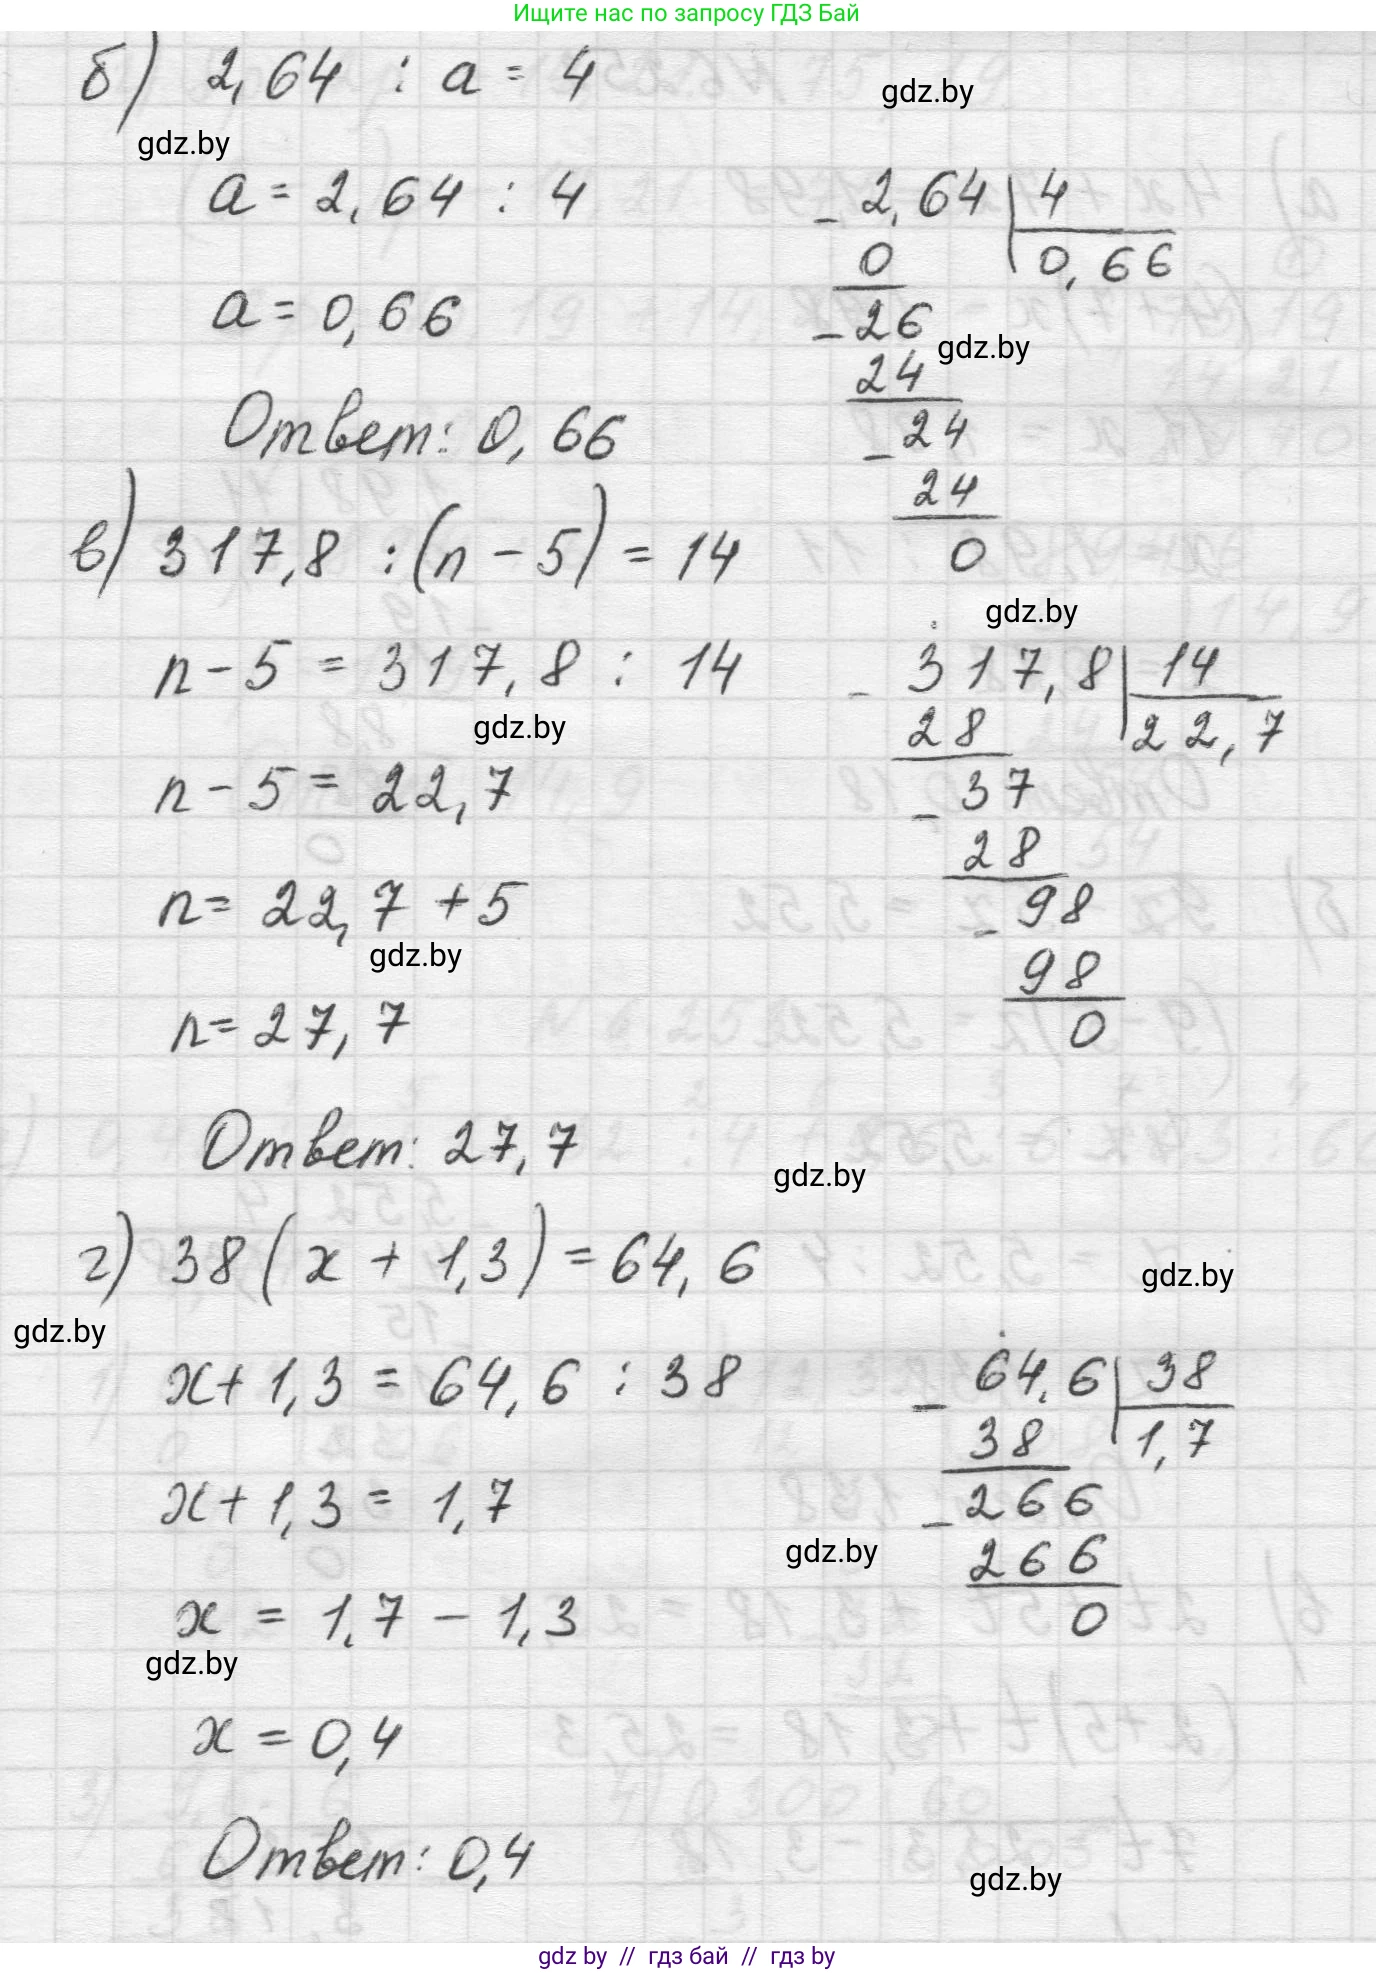 Ищите нас по запросу ГДЗ Бай
б) 2,64 : a = 4
gdz.by
gdz.by
a = 2,64 : 4
a = 0,66
Ответ: 0,66
- 2,64 | 4
0 0,66
- 26
gdz.by
24
- 24
24
0
в) 317,8 : (n - 5) = 14
gdz.by
n - 5 = 317,8 : 14
gdz.by
n - 5 = 22,7
n = 22,7 + 5
gdz.by
n = 27,7
Ответ: 27,7
- 317,8 | 14
28 22,7
- 37
28
- 98
98
0
gdz.by
г) 38 (x + 1,3) = 64,6
gdz.by
gdz.by
x + 1,3 = 64,6 : 38
x + 1,3 = 1,7
gdz.by
x = 1,7 - 1,3
gdz.by
x = 0,4
Ответ: 0,4
- 64,6 | 38
38 1,7
- 266
266
0
gdz.by
gdz by // гдз бай // гдз by